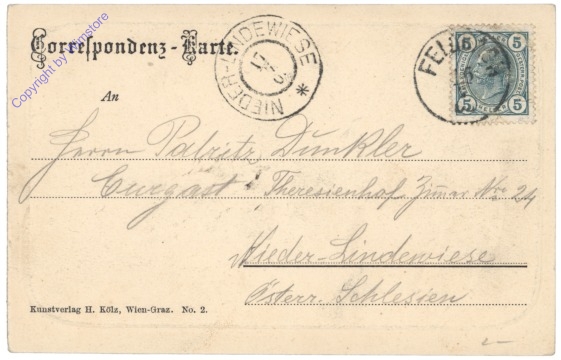 Correspondenz-Karte.
Copyright by filmstore
An
NIEDER-LINDEWIESE
5
5
5
Herrn Patritz Dunkler
Curgast Theresienhof Zimmer Nro 24
Nieder-Lindewiese
Österr. Schlesien
Kunstverlag H. Kölz, Wien-Graz. No. 2.